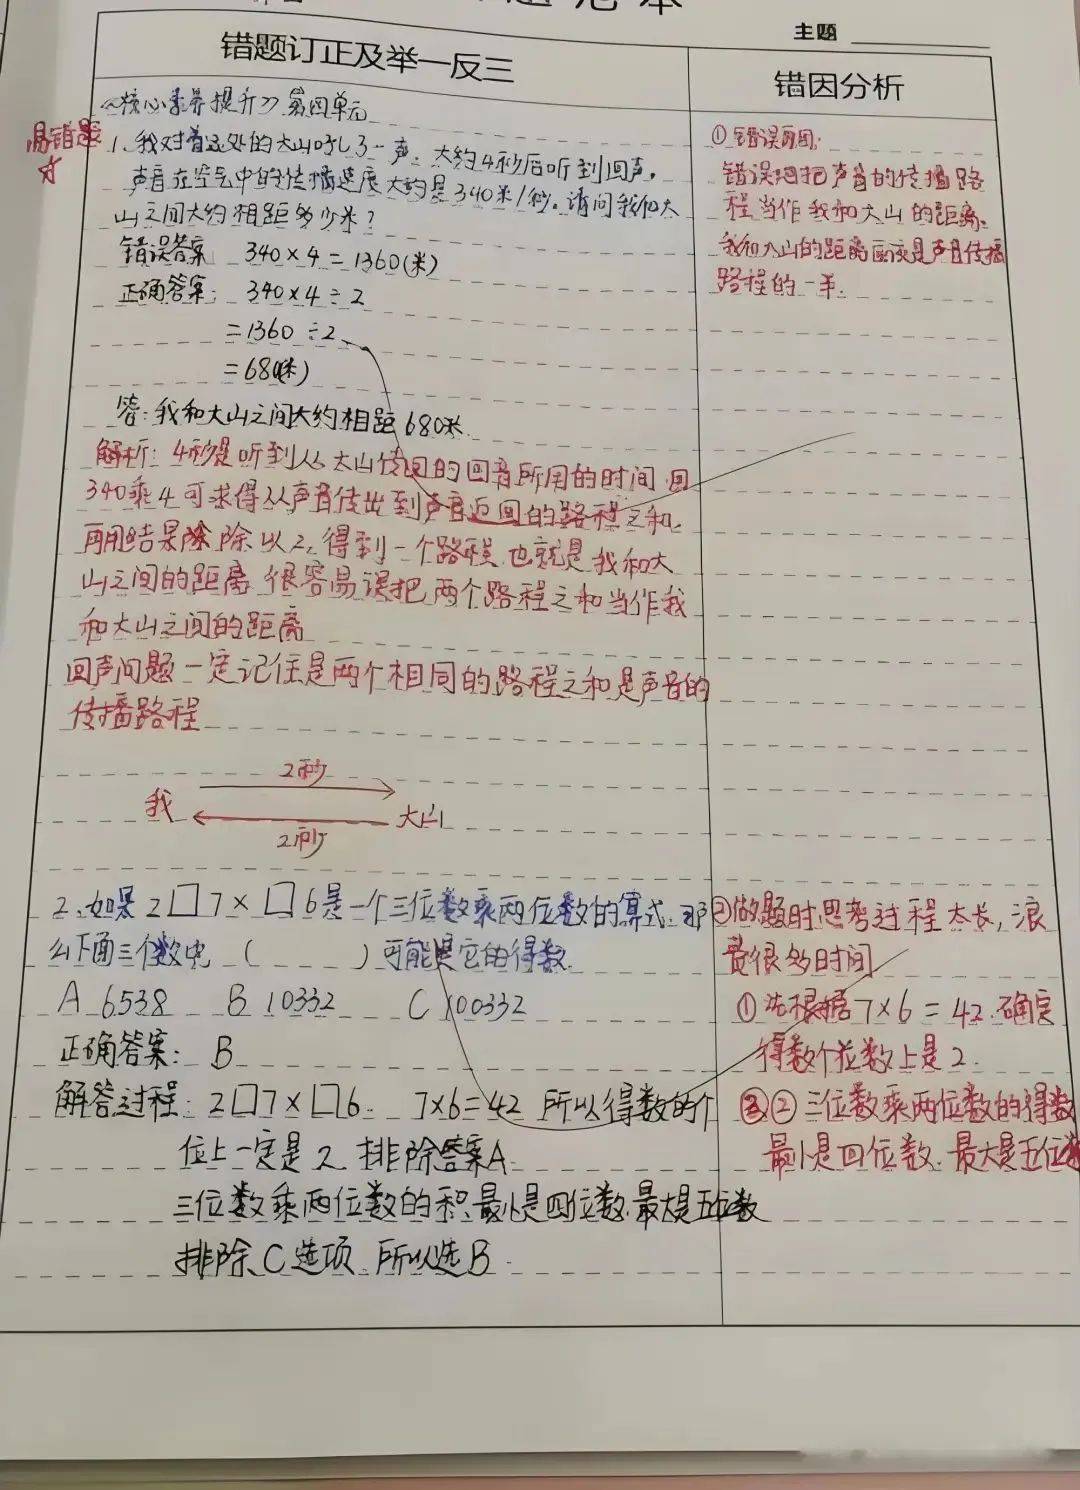 主题
错题订正及举一反三
错因分析
《核心素养提升》第四单元
易错题
1、我对着远处的大山吼了一声。大约4秒后听到回声，
声音在空气中的传播速度大约是340米/秒。请问我和大
山之间大约相距多少米？
错误答案 340×4=1360(米)
正确答案: 340×4÷2
=1360÷2
=680(米)
答:我和大山之间大约相距680米
解析: 4秒是听到从大山传回的回音所用的时间 用
340乘4可求得从声音传出到声音返回的路程之和。
再用结果除以2。得到一个路程 也就是我和大
山之间的距离 很容易误把两个路程之和当作我
和大山之间的距离
回声问题一定记住是两个相同的路程之和是声音的
传播路程
2秒
我 大山
2秒
2、如果2□7×□6是一个三位数乘两位数的算式.那
么下面三个数中 ( ) 可能是它的得数
A 6538 B 10332 C 100332
正确答案: B
解答过程: 2□7×□6. 7×6=42 所以得数的个
位上一定是2 排除答案A
三位数乘两位数的积最小是四位数.最大是五位数
排除C选项 所以选B.
①错误原因:
错误地把声音的传播路
程当作我和大山的距离。
我和大山的距离应该是声音传播
路程的一半.
②做题时思考过程太长,浪
费很多时间
①先根据7×6=42.确定
得数个位数上是2.
②三位数乘两位数的得数
最小是四位数.最大是五位